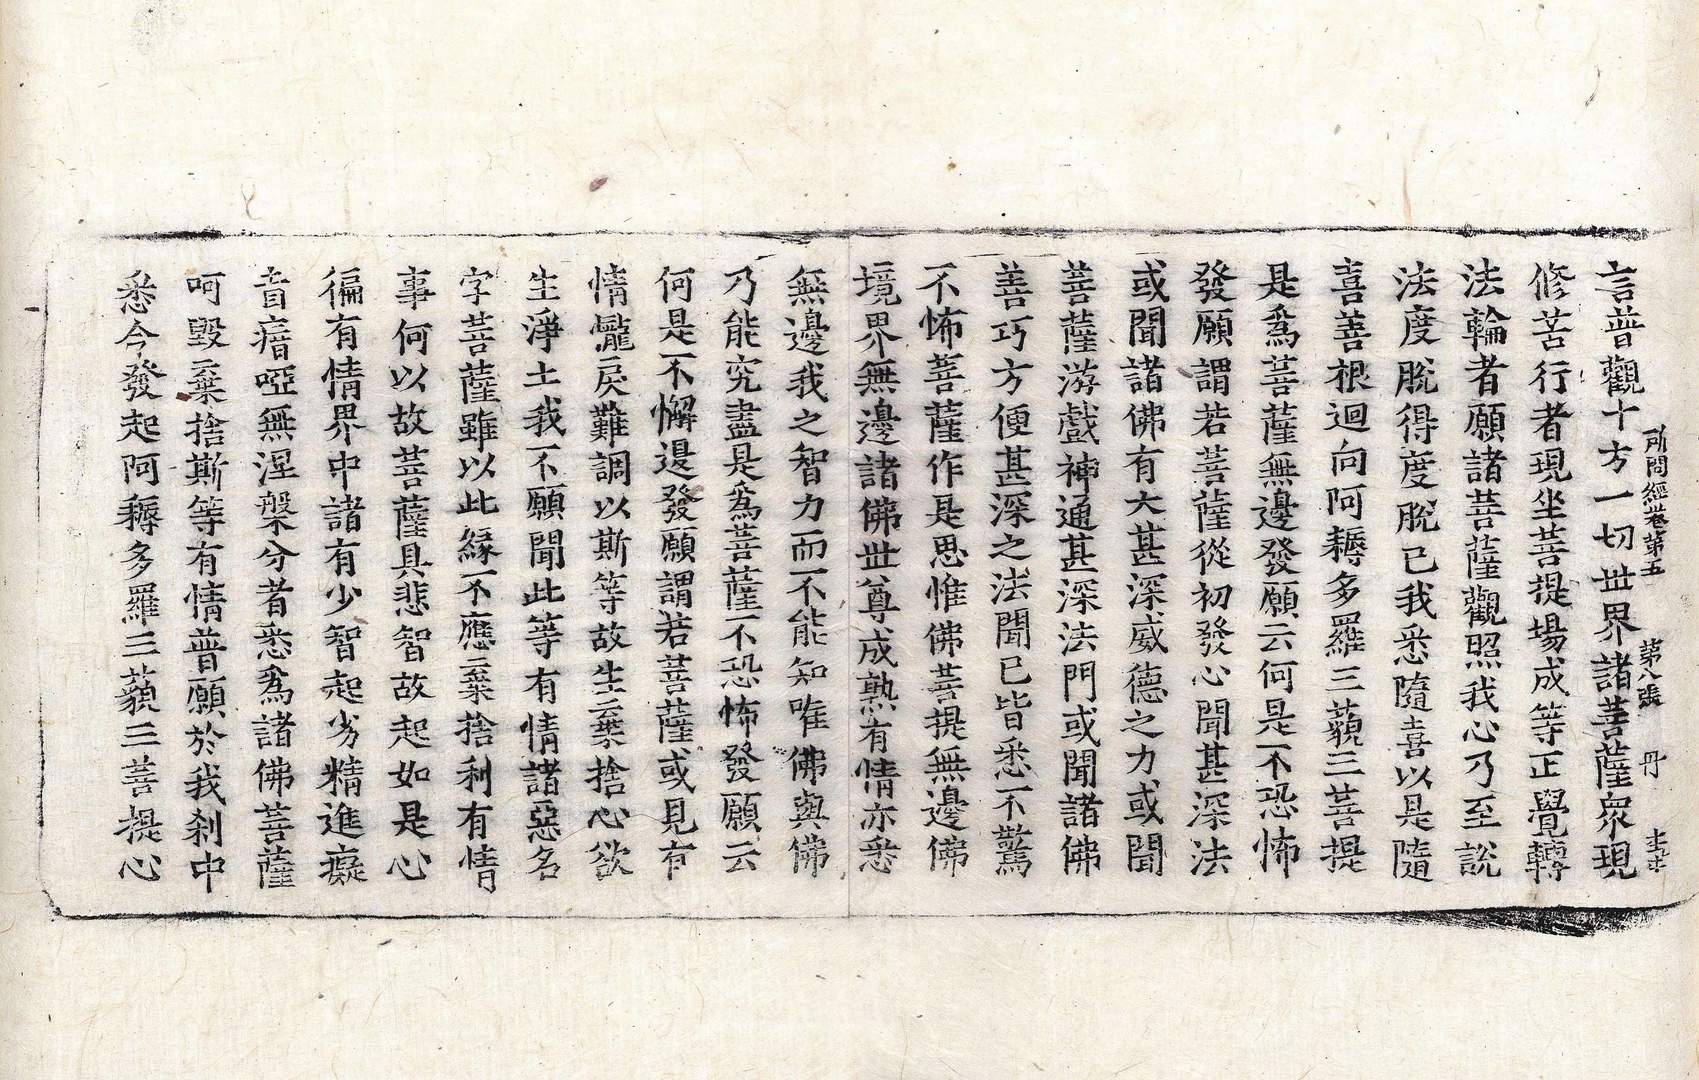 所問經卷第五 第八張 丹
言普觀十方一切世界諸菩薩衆現
修苦行者現坐菩提場成等正覺轉
法輪者願諸菩薩觀照我心乃至說
法度脫得度脫已我悉隨喜以是隨
喜善根迴向阿耨多羅三藐三菩提
是爲菩薩無邊發願云何是不恐怖
發願謂若菩薩從初發心聞甚深法
或聞諸佛有大甚深威德之力或聞
菩薩游戲神通甚深法門或聞諸佛
善巧方便甚深之法聞已皆悉不驚
不怖菩薩作是思惟佛菩提無邊佛
境界無邊諸佛世尊成熟有情亦悉
無邊我之智力而不能知唯佛與佛
乃能究盡是爲菩薩不恐怖發願云
何是不懈邊發願謂若菩薩或見有
情㦬戾難調以斯等故生棄捨心欲
生淨土我不願聞此等有情諸惡名
字菩薩雖以此緣不應棄捨利有情
事何以故菩薩具悲智故起如是心
徧有情界中諸有少智起劣精進癡
盲瘖啞無涅槃分者悉爲諸佛菩薩
呵毀棄捨斯等有情普願於我刹中
悉令發起阿耨多羅三藐三菩提心